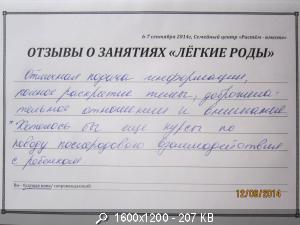 6-7 сентября 2014г, Семейный центр «Растём - вместе»
ОТЗЫВЫ О ЗАНЯТИЯХ «ЛЁГКИЕ РОДЫ»
Отличная подача информации,
полное раскрытие темы, доброжела-
тельное отношение и внимание
*Хотелось бы еще курсы по
поводу послеродового взаимодействия
с ребенком.
Вы - будущая мама/ сопровождающий
12/09/2014
1600x1200 - 207 KB